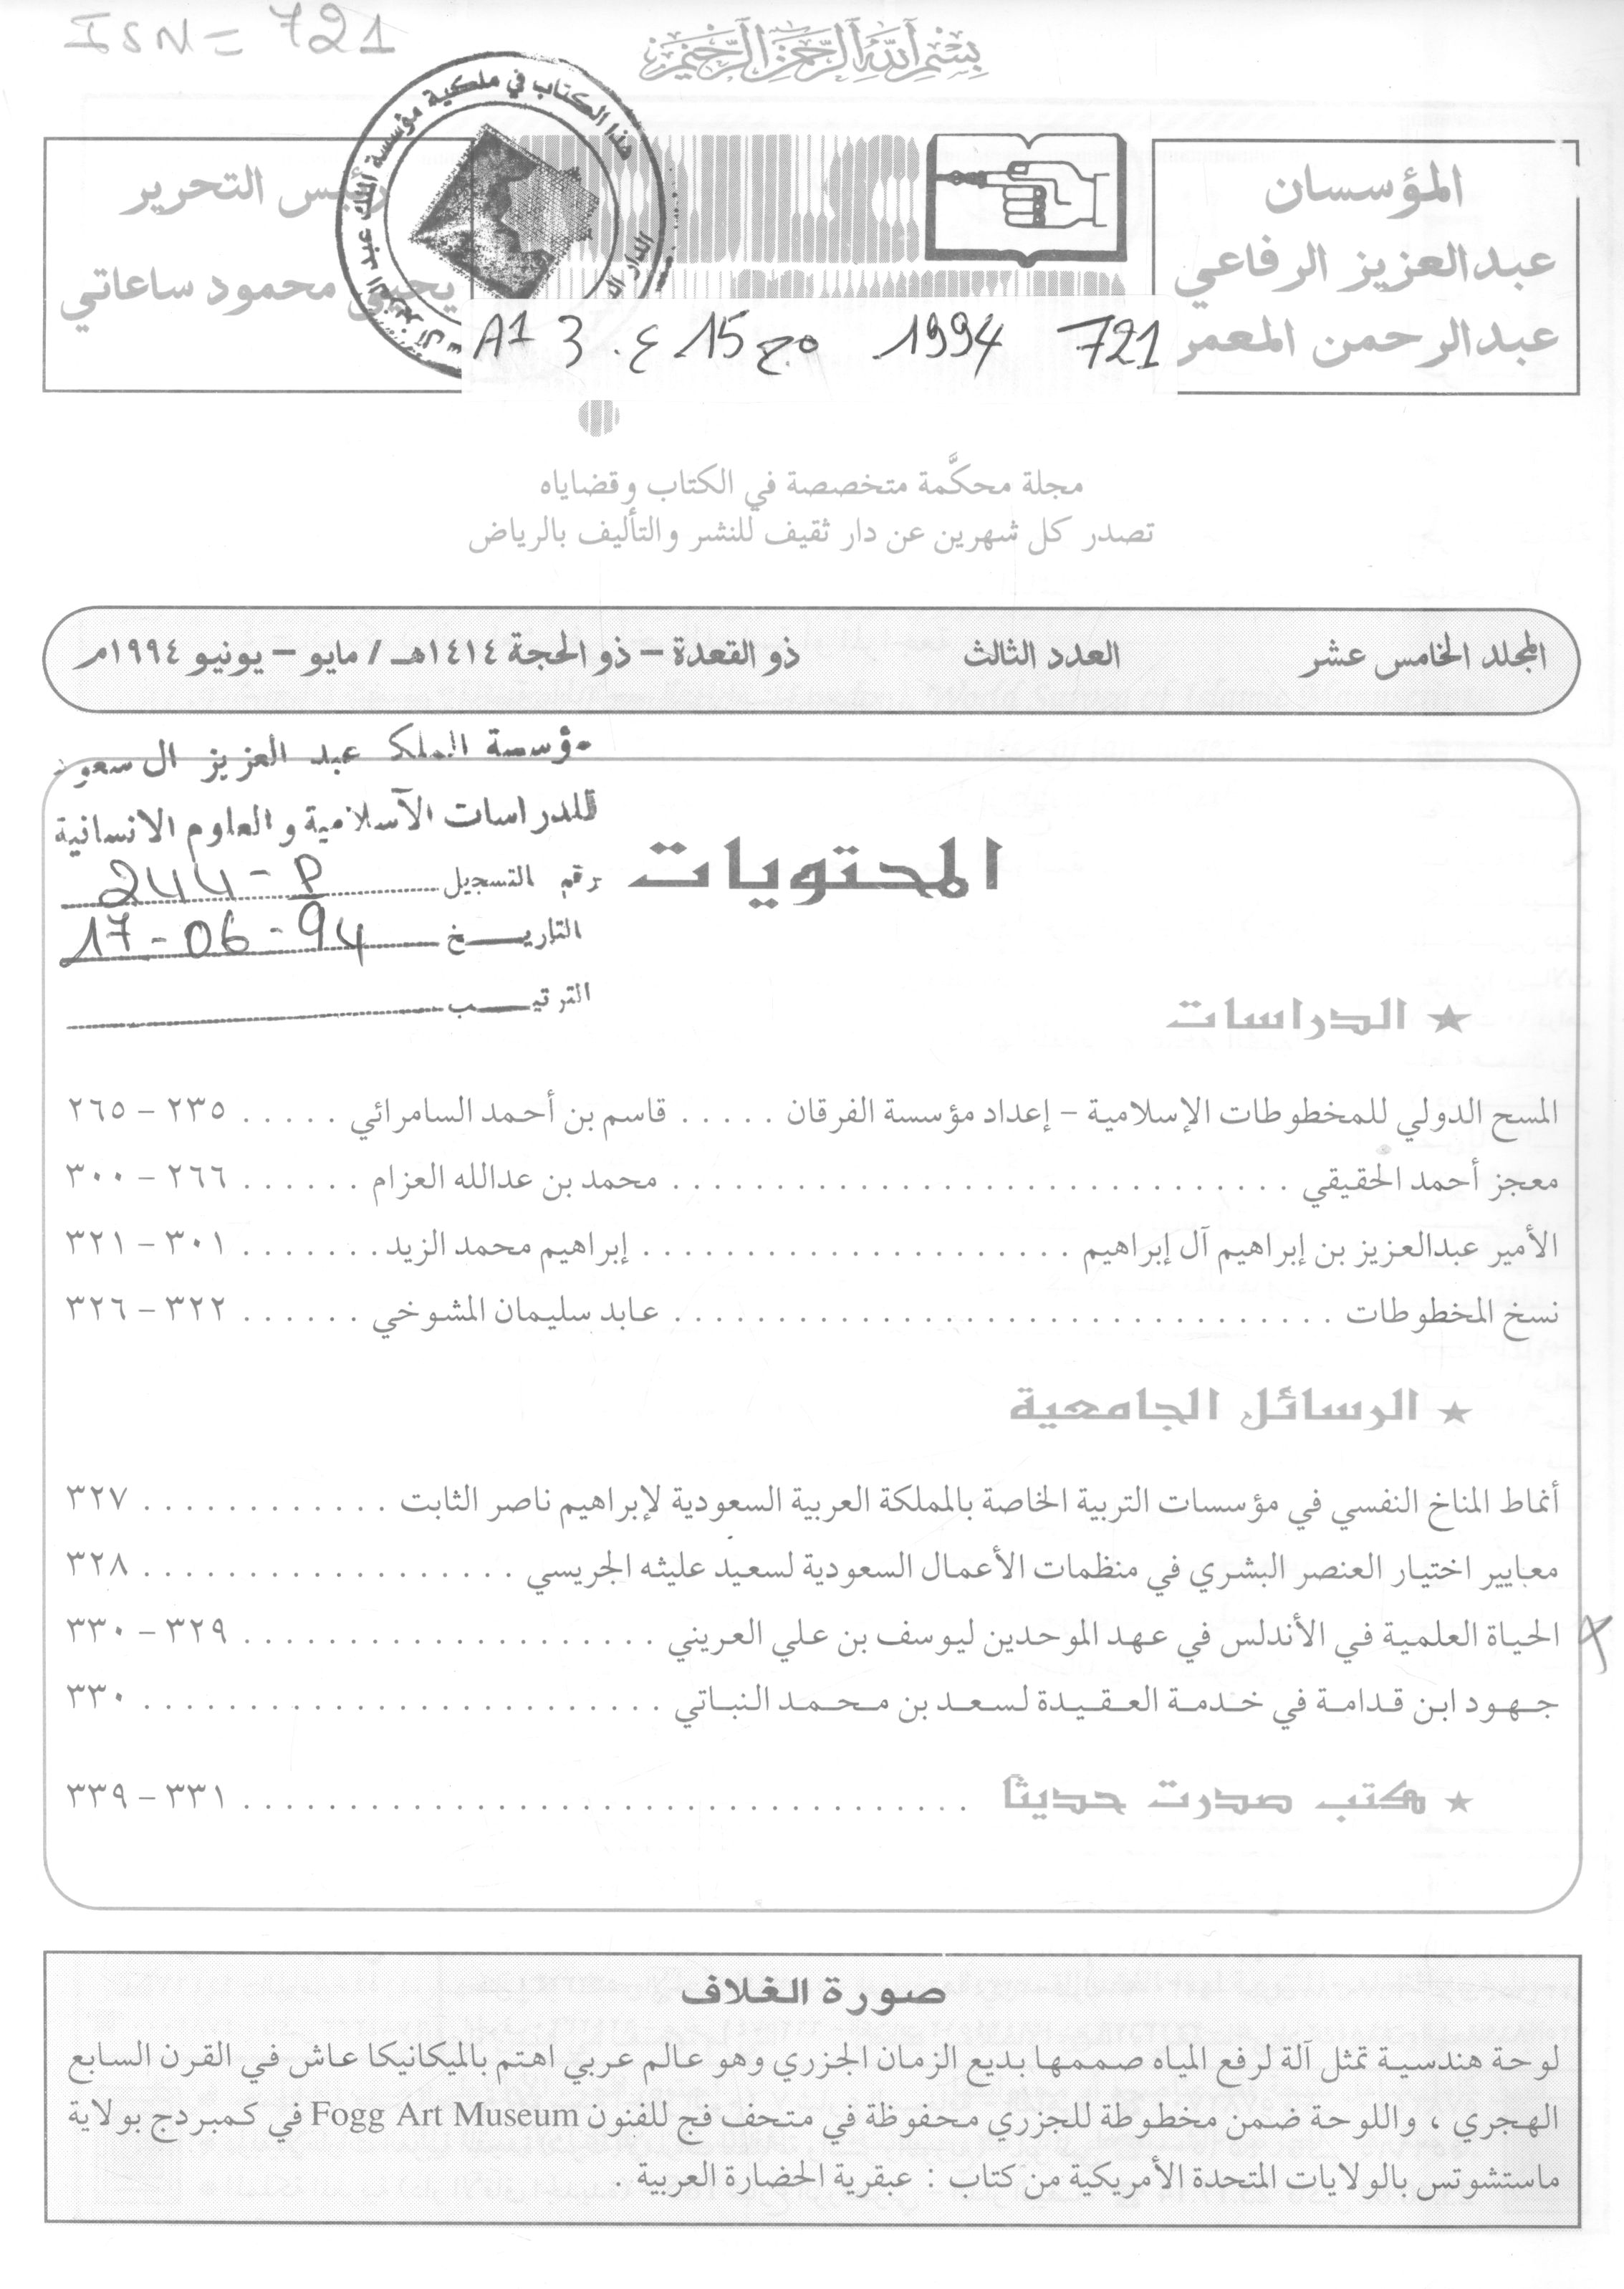 ISN = 721
بسم الله الرحمن الرحيم
المؤسسان
عبدالعزيز الرفاعي
عبدالرحمن المعمر
رئيس التحرير
يحيى محمود ساعاتي
هذا الكتاب في ملكية مؤسسة الملك عبد العزيز آل
الدار
721 1994 مج 15 ع. 3 A1
مجلة محكَّمة متخصصة في الكتاب وقضاياه
تصدر كل شهرين عن دار ثقيف للنشر والتأليف بالرياض
المجلد الخامس عشر العدد الثالث ذو القعدة – ذو الحجة ١٤١٤هـ / مايو – يونيو ١٩٩٤م
مؤسسة الملك عبد العزيز ال سعود
للدراسات الآسلامية والعلوم الانسانية
رقم التسجيل 244-P
التاريخ 17-06-94
الترتيب
المحتويات
★ الدراسات
المسح الدولي للمخطوطات الإسلامية – إعداد مؤسسة الفرقان ..... قاسم بن أحمد السامرائي ..... ٢٣٥ – ٢٦٥
معجز أحمد الحقيقي ..... محمد بن عدالله العزام ...... ٢٦٦ – ٣٠٠
الأمير عبدالعزيز بن إبراهيم آل إبراهيم ..... إبراهيم محمد الزيد ....... ٣٠١ – ٣٢١
نسخ المخطوطات ..... عابد سليمان المشوخي ...... ٣٢٢ – ٣٢٦
★ الرسائل الجامعية
أنماط المناخ النفسي في مؤسسات التربية الخاصة بالمملكة العربية السعودية لإبراهيم ناصر الثابت ............ ٣٢٧
معايير اختيار العنصر البشري في منظمات الأعمال السعودية لسعيد عليثه الجريسي .................. ٣٢٨
الحياة العلمية في الأندلس في عهد الموحدين ليوسف بن علي العريني .................... ٣٢٩ – ٣٣٠
جهود ابن قدامة في خدمة العقيدة لسعد بن محمد النباتي ......................... ٣٣٠
★ كتب صدرت حديثاً ................................... ٣٣١ – ٣٣٩
صورة الغلاف
لوحة هندسية تمثل آلة لرفع المياه صممها بديع الزمان الجزري وهو عالم عربي اهتم بالميكانيكا عاش في القرن السابع
الهجري ، واللوحة ضمن مخطوطة للجزري محفوظة في متحف فج للفنون Fogg Art Museum في كمبردج بولاية
ماستشوتس بالولايات المتحدة الأمريكية من كتاب : عبقرية الحضارة العربية .